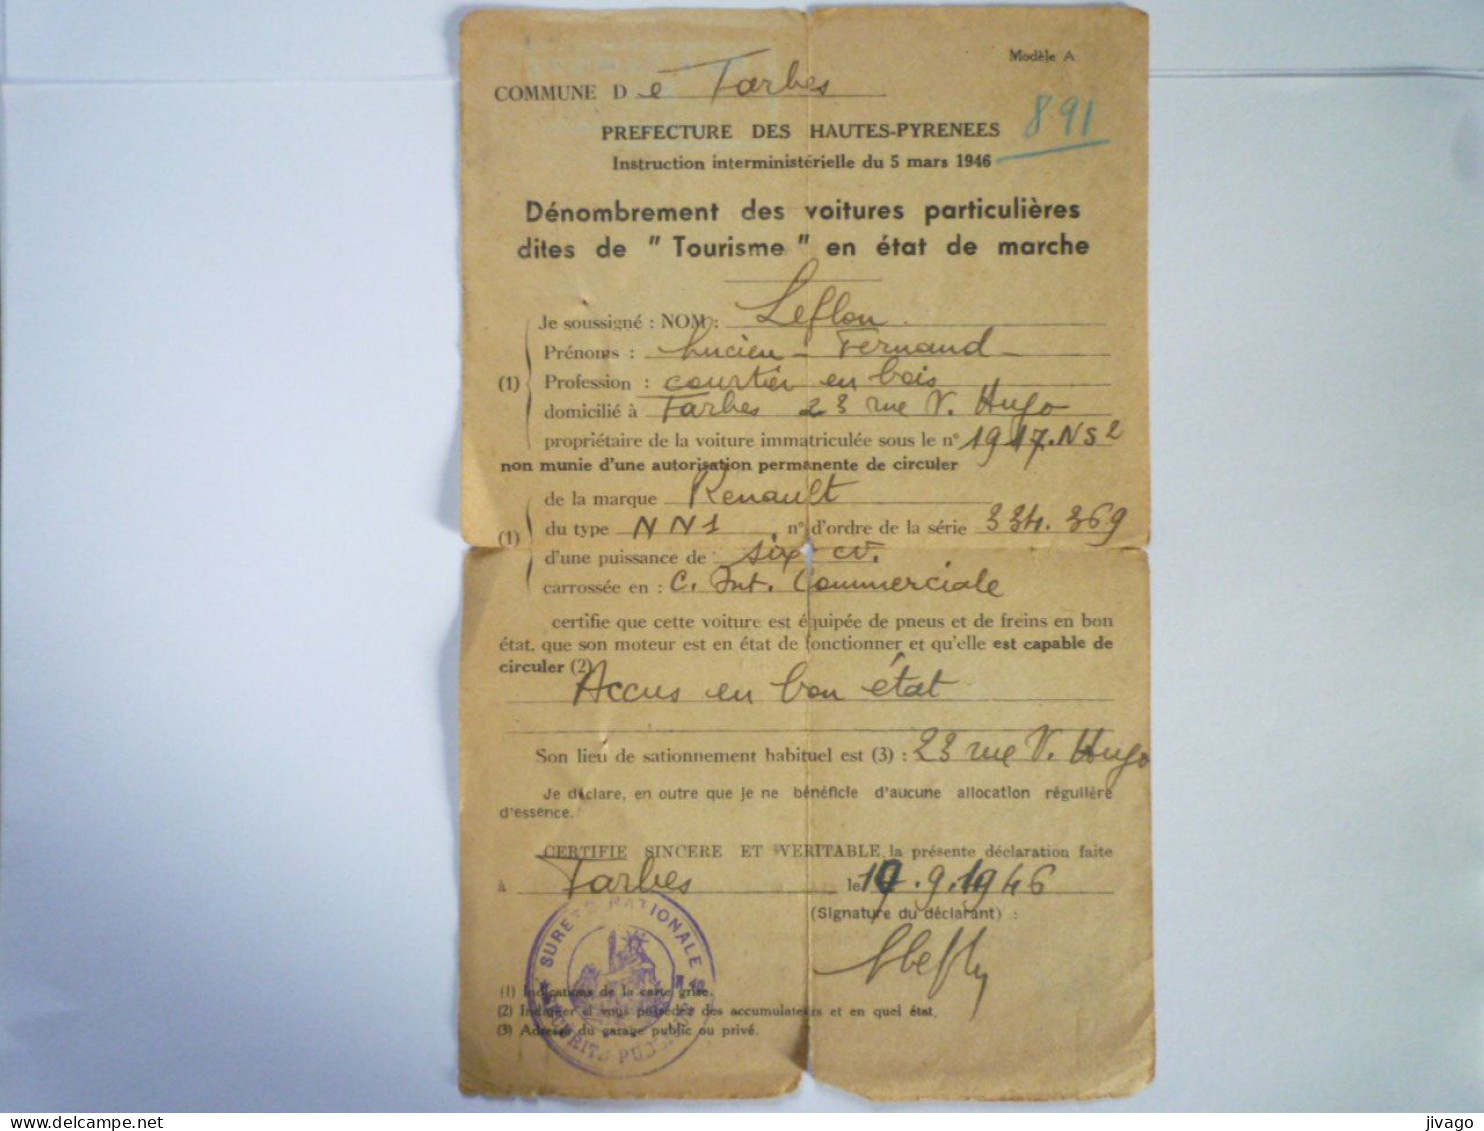 Modèle A
COMMUNE De Tarbes
891
PREFECTURE DES HAUTES-PYRENEES
Instruction interministérielle du 5 mars 1946
Dénombrement des voitures particulières
dites de " Tourisme " en état de marche
Je soussigné : NOM : Leflon
Prénoms : Lucien - Fernand -
(1) Profession : courtier en bois
domicilié à Tarbes 23 rue V. Hugo
propriétaire de la voiture immatriculée sous le n° 1917.NS2
non munie d'une autorisation permanente de circuler
de la marque Renault
(1) du type NN1 n° d'ordre de la série 334.369
d'une puissance de six cv.
carrossée en : C. Int. Commerciale
certifie que cette voiture est équipée de pneus et de freins en bon
état, que son moteur est en état de fonctionner et qu'elle est capable de
circuler (2)
Accus en bon état
Son lieu de sationnement habituel est (3) : 23 rue V. Hugo
Je déclare, en outre que je ne bénéficie d'aucune allocation régulière
d'essence.
CERTIFIE SINCERE ET VERITABLE la présente déclaration faite
à Tarbes le 9.1946
(Signature du déclarant) :
SURETÉ NATIONALE
SÉCURITÉ PUBLIQUE
(1) Indications de la carte grise.
(2) Indiquer si vous possédez des accumulateurs et en quel état.
(3) Adresse du garage public ou privé.
jivago